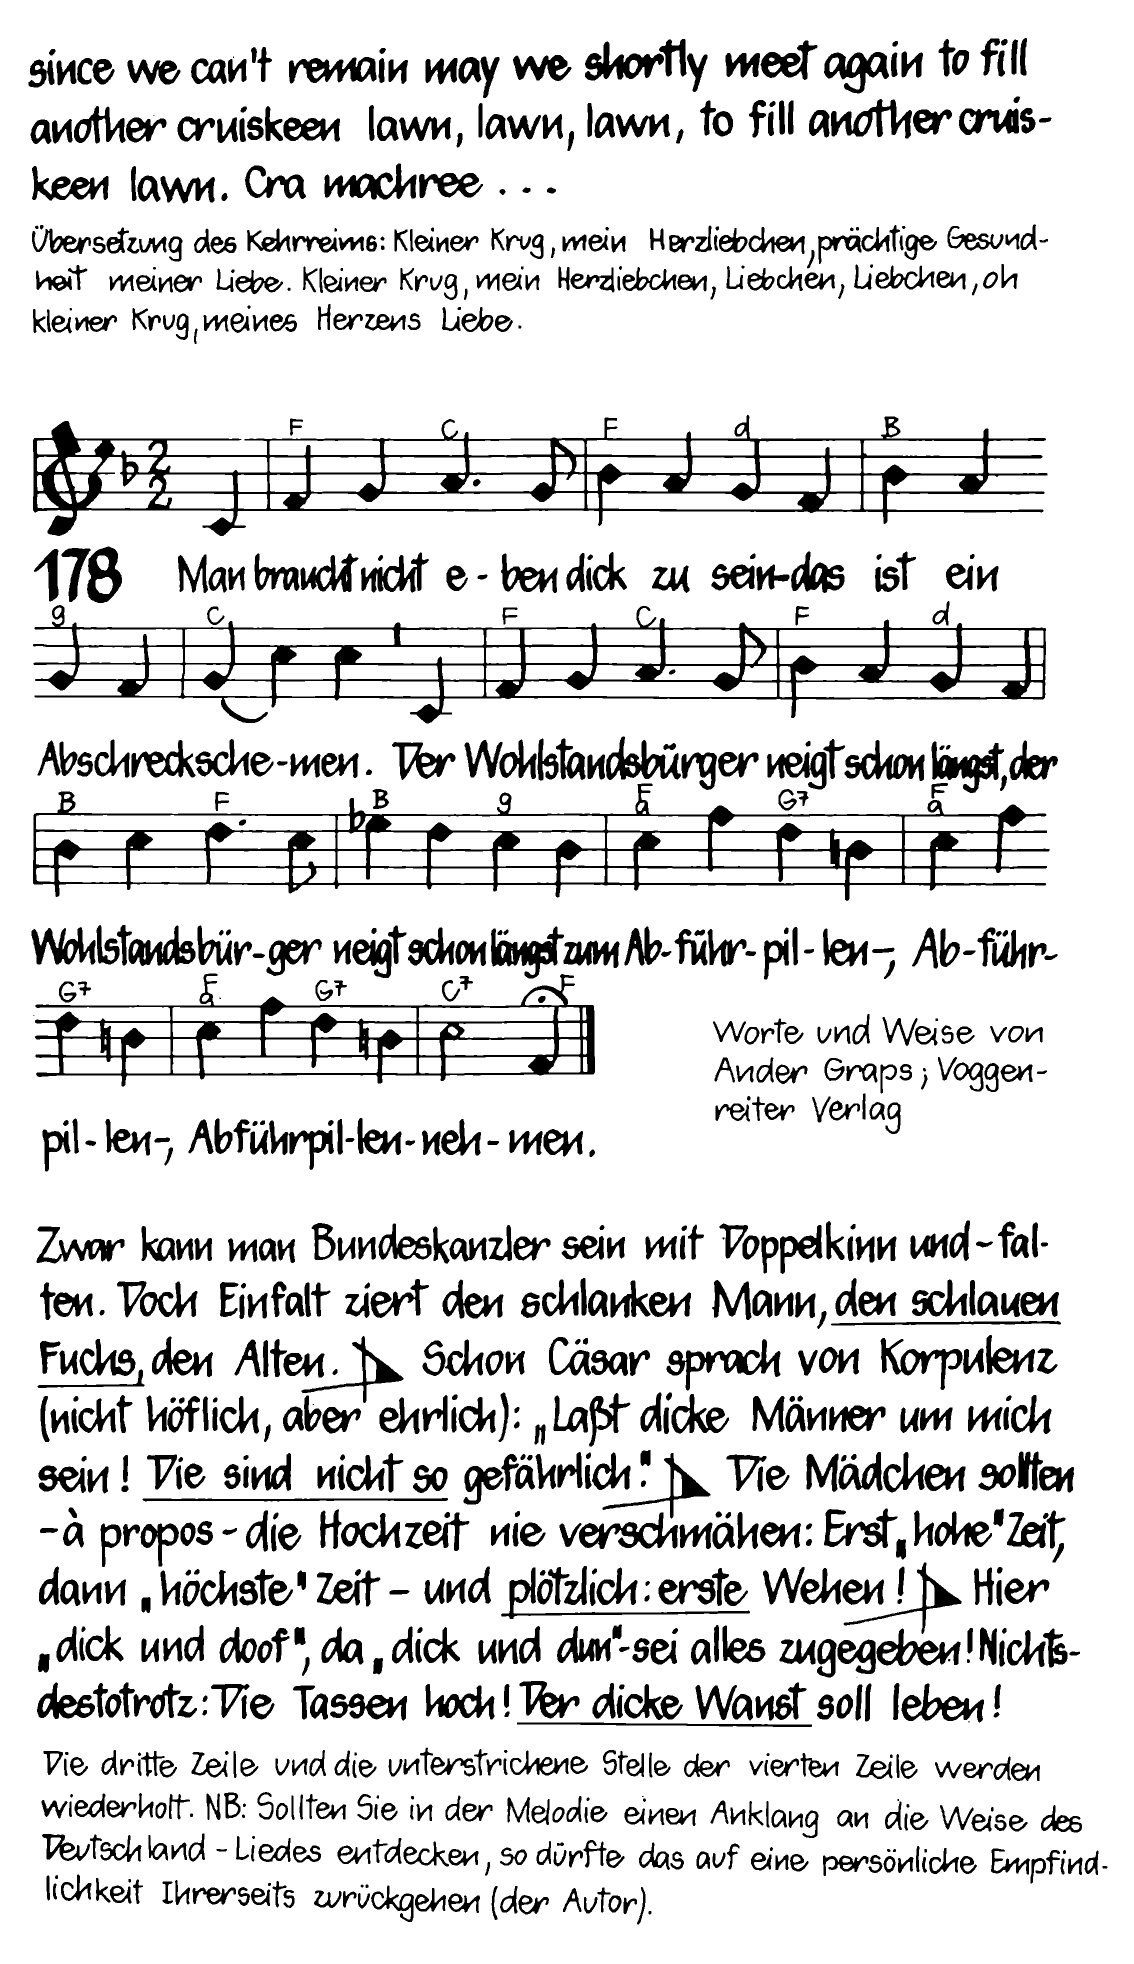 since we can't remain may we shortly meet again to fill
another cruiskeen lawn, lawn, lawn, to fill another cruis-
keen lawn. Cra machree . . .
Übersetzung des Kehrreims: Kleiner Krug, mein Herzliebchen, prächtige Gesund-
heit meiner Liebe. Kleiner Krug, mein Herzliebchen, Liebchen, Liebchen, oh
kleiner Krug, meines Herzens Liebe.
F C F d B
2
2
178 Man braucht nicht e - ben dick zu sein-das ist ein
g C F C F d
Abschrecksche-men. Der Wohlstandsbürger neigt schon längst, der
B F B g F a G7 F a
Wohlstandsbür-ger neigt schon längst zum Ab-führ-pil-len-, Ab-führ-
G7 F a G7 C7 F
Worte und Weise von
Ander Graps; Voggen-
reiter Verlag
pil-len-, Abführpil-len-neh-men.
Zwar kann man Bundeskanzler sein mit Doppelkinn und -fal-
ten. Doch Einfalt ziert den schlanken Mann, den schlauen
Fuchs, den Alten. Schon Cäsar sprach von Korpulenz
(nicht höflich, aber ehrlich): „Laßt dicke Männer um mich
sein! Die sind nicht so gefährlich." Die Mädchen sollten
-à propos - die Hochzeit nie verschmähen: Erst „hohe" Zeit,
dann „höchste" Zeit - und plötzlich: erste Wehen! Hier
„dick und doof", da „dick und dun"-sei alles zugegeben! Nichts-
destotrotz: Die Tassen hoch! Der dicke Wanst soll leben!
Die dritte Zeile und die unterstrichene Stelle der vierten Zeile werden
wiederholt. NB: Sollten Sie in der Melodie einen Anklang an die Weise des
Deutschland-Liedes entdecken, so dürfte das auf eine persönliche Empfind-
lichkeit Ihrerseits zurückgehen (der Autor).